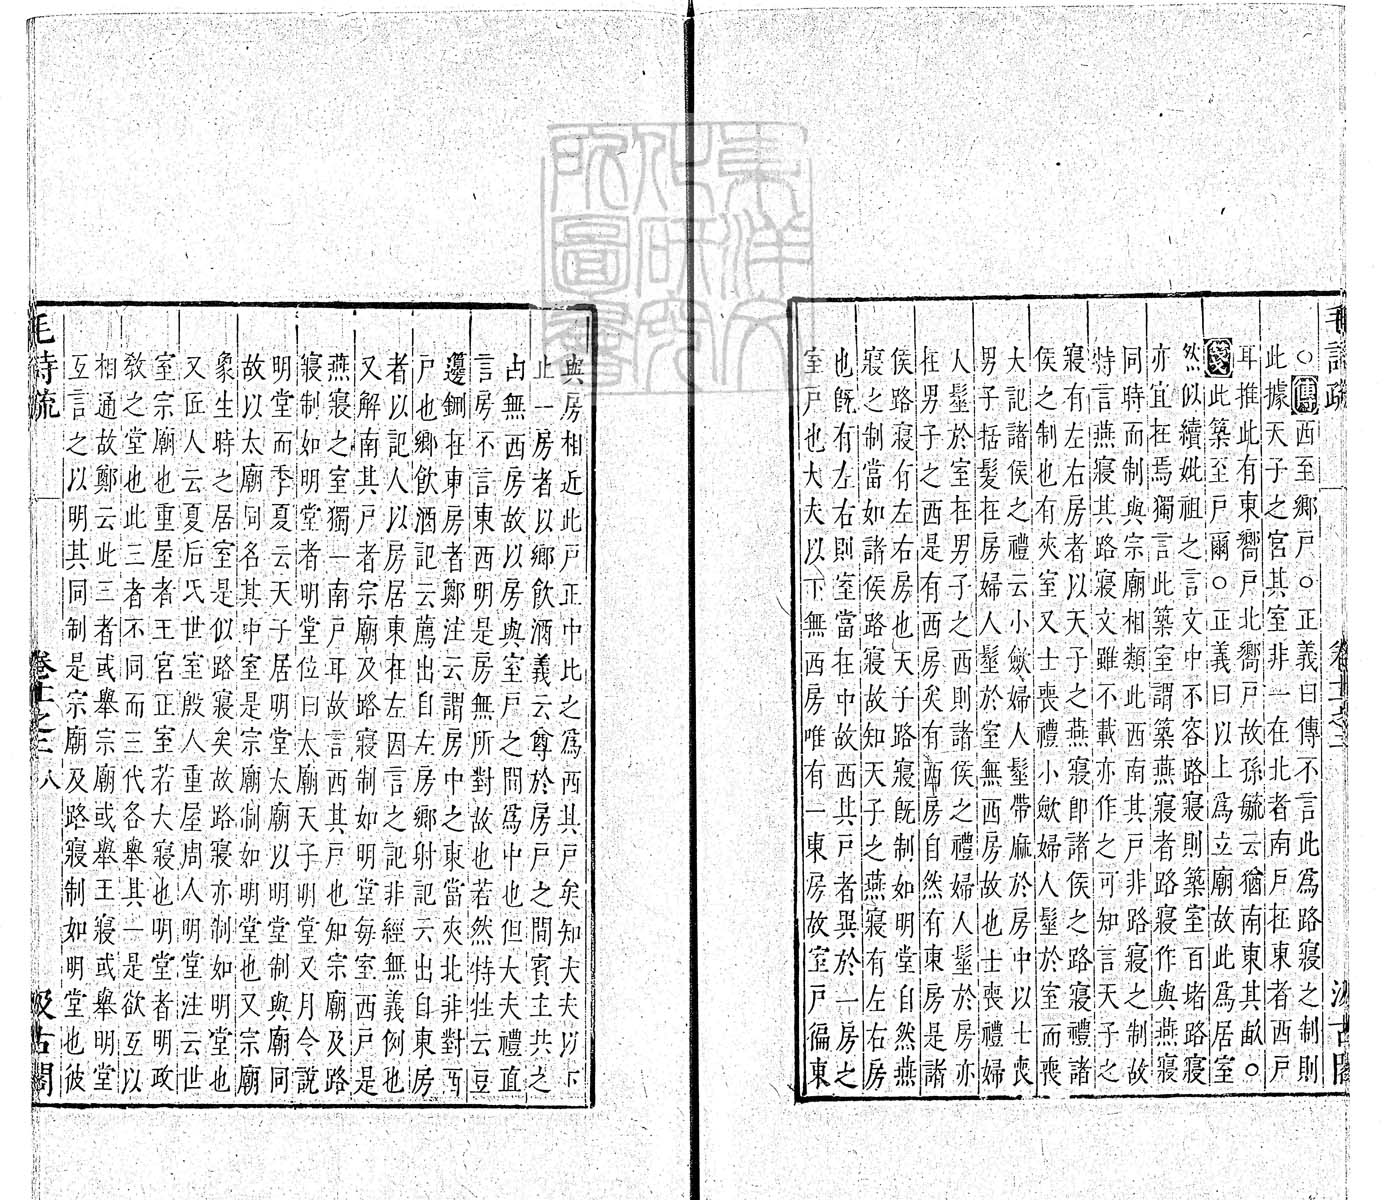 毛詩疏
卷十一之二
汲古閣
○傳西至鄉戶○正義曰傳不言此爲路寢之制則
此據天子之宮其室非一在北者南戶在東者西戶
耳推此有東嚮戶北嚮戶故孫毓云猶南東其畝○
箋此築至戶爾○正義曰以上爲立廟故此爲居室
然似續妣祖之言文中不容路寢則築室百堵路寢
亦宜在焉獨言此築室謂築燕寢者路寢作與燕寢
同時而制與宗廟相類此西南其戶非路寢之制故
特言燕寢其路寢文雖不載亦作之可知言天子之
寢有左右房者以天子之燕寢卽諸侯之路寢禮諸
侯之制也有夾室又士喪禮小斂婦人髽於室而喪
大記諸侯之禮云小斂婦人髽帶麻於房中以士喪
男子括髮在房婦人髽於室無西房故也士喪禮婦
人髽於室在男子之西則諸侯之禮婦人髽於房亦
在男子之西是有西房矣有西房自然有東房是諸
侯路寢有左右房也天子路寢旣制如明堂自然燕
寢之制當如諸侯路寢故知天子之燕寢有左右房
也旣有左右則室當在中故西其戶者異於一房之
室戶也大夫以下無西房唯有一東房故室戶徧東
與房相近此戶正中比之爲西其戶矣知大夫以下
止一房者以鄉飲酒義云尊於房戶之間賓主共之
占無西房故以房與室戶之間爲中也但大夫禮直
言房不言東西明是房無所對故也若然特牲云豆
籩鉶在東房者鄭注云謂房中之東當夾北非對西
戶也鄉飲酒記云薦出自左房鄉射記云出自東房
者以記人以房居東在左因言之記非經無義例也
又解南其戶者宗廟及路寢制如明堂每室西戶是
燕寢之室獨一南戶耳故言西其戶也知宗廟及路
寢制如明堂者明堂位曰太廟天子明堂又月令說
明堂而季夏云天子居明堂太廟以明堂制與廟同
故以太廟同名其中室是宗廟制如明堂也又宗廟
象生時之居室是似路寢矣故路寢亦制如明堂也
又匠人云夏后氏世室殷人重屋周人明堂注云世
室宗廟也重屋者王宮正室若大寢也明堂者明政
敎之堂也此三者不同而三代各舉其一是欲互以
相通故鄭云此三者或舉宗廟或舉王寢或舉明堂
互言之以明其同制是宗廟及路寢制如明堂也彼
毛詩疏
卷十一之二
八
汲古閣
東洋文
化研究
所圖書